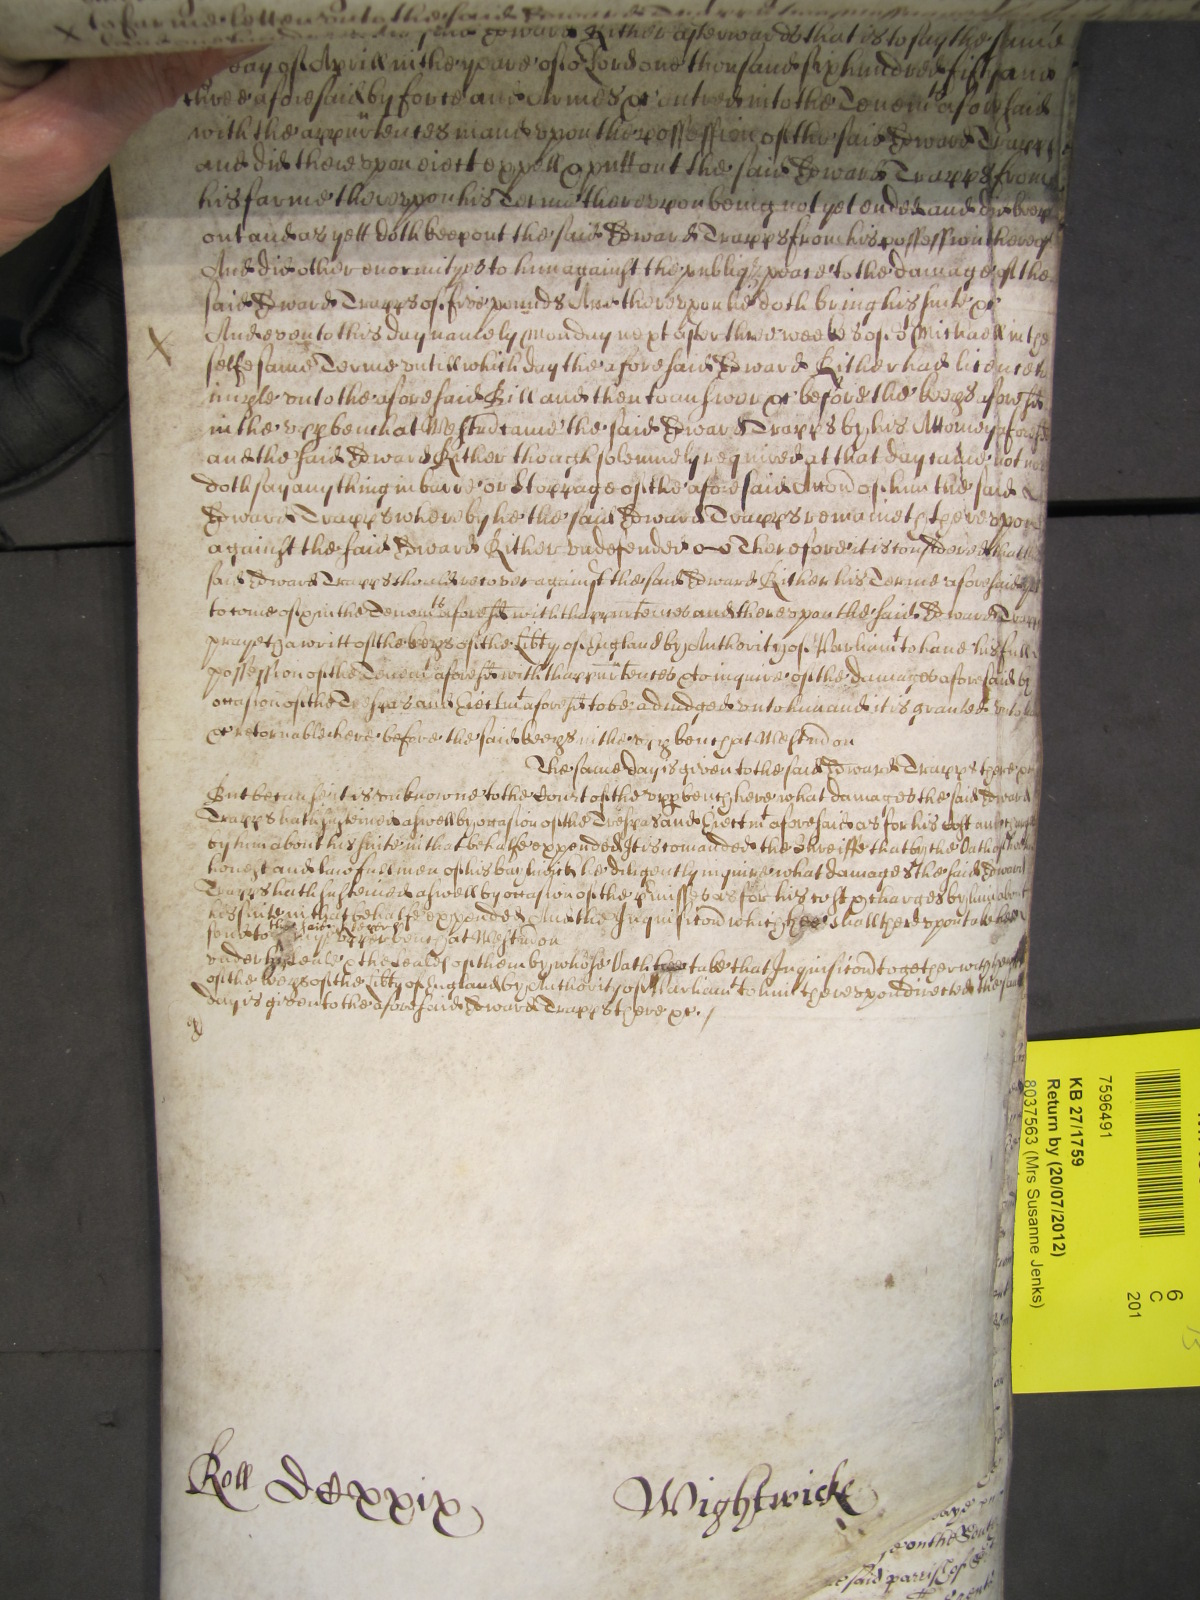 to farme letten unto the said Edward
said Edward Kither afterwards that is to say the same
day of Aprill in the yeare of or Lord one thousand six hundred fifty and
three aforesaid by force and armes &c entred into the Tenemts aforesaid
with the appurtences in and upon the possession of the said Edward Trapps
and did thereupon eiect expell & putt out the said Edward Trapps from
his farme thereupon his Terme thereupon being not yet ended and did keepe
out and as yett doth keep out the said Edward Trapps from his possession thereof
And did other enormityes to him against the publiq peace to the damage of the
said Edward Trapps of five pounds And thereupon he doth bring his suite &c
X And even to this day namely Monday next after three weekes of St Michaell in the
selfe same Terme untill which day the aforesaid Edward Kither had licence to
imple unto the aforesaid Bill and then to answer &c before the keeps aforesd
in the uppbench at Westm came the said Edward Trapps by his Attorney aforesd
and the said Edward Kither though solemnely required at that day came not nor
doth say any thing in barre or stoppage of the aforesaid Accon of him the said
Edward Trapps whereby he the said Edward Trapps remaineth thereupon
against the said Edward Kither undefended Therefore it is considered that the
said Edward Trapps should recover against the said Edward Kither his Terme aforesaid yet
to come of & in the Tenemts aforesd with thappurtences and thereupon the said Edward Trapps
prayeth a writt of the keeps of the Libty of England by Authority of Parliamt to have his full
possession of the Tenemts aforesd with thappurtences & to inquire of the damages aforesaid by
occasion of the Trespas and Eiectmt aforesd to be adiudged unto him and it is granted unto him
&c retornable here before the said keeps in the upp bench at Westm on
The same day is given to the said Edward Trapps there &c
But because it is unknowne to the Court of the upp bench here what damages the said Edward
Trapps hath susteined aswell by occasion of the Trespas and Eiectmt aforesaid as for his cost and charges
by him about his suite in that behalfe expended It is comanded the Shreiffe that by the Oath of
honest and lawfull men of his bayliwick he diligently inquire what damages the said Edward
Trapps hath susteined aswell by occasion of the p'misses as for his cost & charges by him about
his suite in that behalfe expended And the Inquisicon which hee shall thereupon take
send to the said keepers upper bench at Westm on
under his seale & the seales of them by whose Oath hee take that Inquisicon together with the writt
of the keeps of the Libty of England by Authority of Parliamt to him thereupon directed the same
day is given to the aforesaid Edward Trapps there &c.
Roll DCxxix
Wightwicke
said parish of
7596491
KB 27/1759
Return by (20/07/2012)
8037563 (Mrs Susanne Jenks)
6
C
201